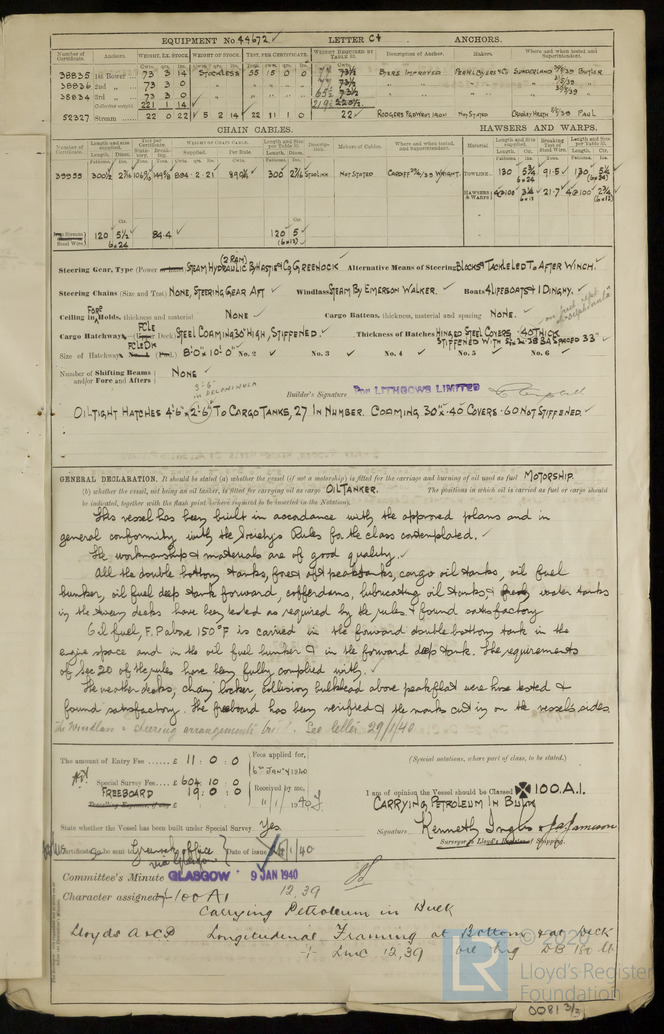 EQUIPMENT No. 44672 LETTER C† ANCHORS.
Number of Certificate. Anchors. WEIGHT, EX. STOCK. WEIGHT OF STOCK. TEST, PER CERTIFICATE. WEIGHT REQUIRED BY TABLE 31. Description of Anchor. Makers. Where and when tested and Superintendent.
38835 1st Bower 73 3 14 STOCKLESS 55 15 0 0 73½ BYERS IMPROVED SUNDERLAND BUTLER
38836 2nd " 73 3 0 73½
38834 3rd " 73 3 0 73½
Collective weight 221 1 14 220½
52327 Stream 22 0 22 5 2 14 22 11 1 0 22 RODGERS NOT STATED PAUL
CHAIN CABLES. HAWSERS AND WARPS.
Number of Certificate. Length and size supplied. Test per Certificate. WEIGHT OF CHAIN CABLE. Length and Size per Table 31. Description. Makers of Cables. Where and when tested, and Superintendent. Material. Length and Size supplied. Breaking Test of Steel Wire. Length and Size per Table 31.
39955 300½ 884 · 2 · 21 300 STUD LINK NOT STATED CARDIFF WRIGHT. TOWLINE 130 5¾ 6x24 91·5 130
HAWSERS & WARPS 4@100 21·7 4@100
Steel Wire 120 5½ 6x24 84·4 120 5 (6x12)
Steering Gear, Type (Power) STEAM HYDRAULIC (2 RAM) BY HASTIE & CO GREENOCK Alternative Means of Steering BLOCKS & TACKLE LED TO AFTER WINCH.
Steering Chains (Size and Test) NONE, STEERING GEAR AFT Windlass STEAM BY EMERSON WALKER. Boats 4 LIFEBOATS & 1 DINGHY.
Ceiling in FORE Holds, thickness and material NONE Cargo Battens, thickness, material and spacing NONE.
Cargo Hatchways FCLE (Upper Deck) STEEL COAMING 30" HIGH, STIFFENED. Thickness of Hatches HINGED STEEL COVERS ·40 THICK
Size of Hatchways FCLE DK 8'·0" x 10'·0" No. 2 No. 3 No. 4 No. 5 No. 6
Number of Shifting Beams and/or Fore and Afters NONE
Builder's Signature For LITHGOWS LIMITED
OILTIGHT HATCHES 4'·6" x 2'·6" TO CARGO TANKS, 27 IN NUMBER. COAMING, 30" x ·40 COVERS ·60 NOT STIFFENED.
GENERAL DECLARATION. It should be stated (a) whether the vessel (if not a motorship) is fitted for the carriage and burning of oil used as fuel MOTORSHIP.
(b) whether the vessel, not being an oil tanker, is fitted for carrying oil as cargo OIL TANKER. The positions in which oil is carried as fuel or cargo should
be indicated, together with the flash point (where required to be inserted in the Notation).
This vessel has been built in accordance with the approved plans and in
general conformity with the Society's Rules for the class contemplated.
The workmanship & materials are of good quality.
All the double bottom tanks, fore & aft peak tanks, cargo oil tanks, oil fuel
bunker, oil fuel deep tank forward, cofferdams, lubricating oil tanks, & fresh water tanks
in the tween decks have been tested as required by the rules & found satisfactory
Oil fuel, F.P above 150°F is carried in the forward double bottom tank in the
engine space and in the oil fuel bunker & in the forward deep tank. The requirements
of Sec 20 of the rules have been fully complied with.
The weather decks, chain locker, collision bulkhead above peak flat were hose tested &
found satisfactory. The freeboard has been verified & the marks cut in on the vessel's sides
The windlass & steering arrangements See letter 29/1/40
The amount of Entry Fee £ 11 : 0 : 0 Fees applied for,
Special Survey Fee £ 604 : 10 : 0 6th JANY 1940
FREEBOARD 19 : 0 : 0 Received by me,
(Special notations, where part of class, to be stated.)
I am of opinion the Vessel should be Classed ✠ 100.A.1.
CARRYING PETROLEUM IN BULK
State whether the Vessel has been built under Special Survey Yes
Signature Kenneth Inglis & Jamieson
Surveyor to Lloyd's Register of Shipping.
Certificate to be sent to Greenock office via Glasgow Date of issue /1/40
Committee's Minute GLASGOW 9 JAN 1940
Character assigned + 100 A1 12,39
Carrying Petroleum in Bulk
Lloyds A&CP Longitudinal Framing at Bottom & at Deck
+ LMC 12,39 oil eng
© 2020
LR
Lloyd's Register
Foundation
0081 3/3